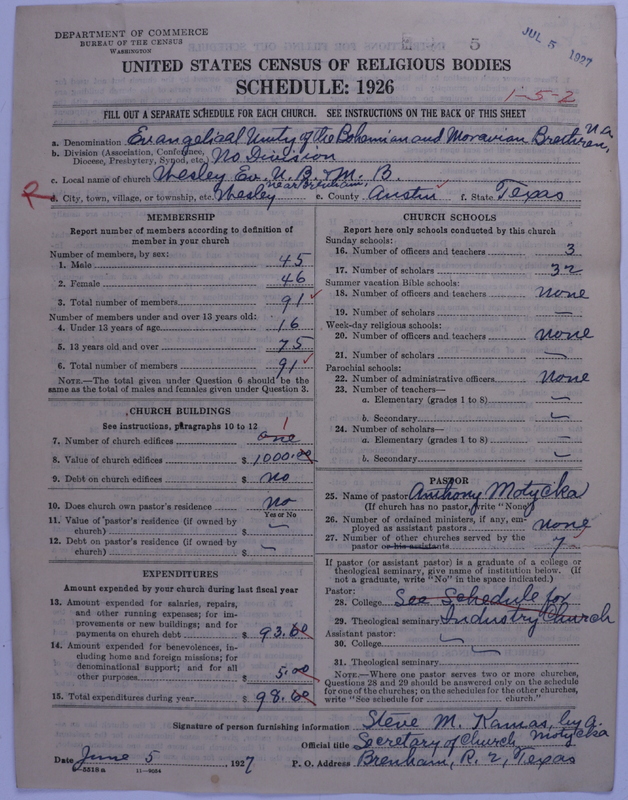 DEPARTMENT OF COMMERCE
BUREAU OF THE CENSUS
WASHINGTON
5
JUL 5 1927
UNITED STATES CENSUS OF RELIGIOUS BODIES
SCHEDULE: 1926
1-5-2
FILL OUT A SEPARATE SCHEDULE FOR EACH CHURCH. SEE INSTRUCTIONS ON THE BACK OF THIS SHEET
a. Denomination Evangelical Unity of the Bohemian and Moravian Brethren, N.A.
b. Division (Association, Conference, Diocese, Presbytery, Synod, etc.) No Division
c. Local name of church Wesley Ev. U. B. & M. B.
d. City, town, village, or township, etc. Wesley near Brenham, e. County Austin f. State Texas
MEMBERSHIP
Report number of members according to definition of
member in your church
Number of members, by sex:
1. Male 45
2. Female 46
3. Total number of members 91
Number of members under and over 13 years old:
4. Under 13 years of age 16
5. 13 years old and over 75
6. Total number of members 91
NOTE.—The total given under Question 6 should be the
same as the total of males and females given under Question 3.
CHURCH BUILDINGS
See instructions, paragraphs 10 to 12
7. Number of church edifices one 1
8. Value of church edifices $ 1000.00
9. Debt on church edifices $ No
10. Does church own pastor's residence No
Yes or No
11. Value of pastor's residence (if owned by
church) $ —
12. Debt on pastor's residence (if owned by
church) $ —
EXPENDITURES
Amount expended by your church during last fiscal year
13. Amount expended for salaries, repairs,
and other running expenses; for im-
provements or new buildings; and for
payments on church debt $ 93.60
14. Amount expended for benevolences, in-
cluding home and foreign missions; for
denominational support; and for all
other purposes $ 5.00
15. Total expenditures during year $ 98.60
CHURCH SCHOOLS
Report here only schools conducted by this church
Sunday schools:
16. Number of officers and teachers 3
17. Number of scholars 32
Summer vacation Bible schools:
18. Number of officers and teachers none
19. Number of scholars —
Week-day religious schools:
20. Number of officers and teachers none
21. Number of scholars —
Parochial schools:
22. Number of administrative officers none
23. Number of teachers—
a. Elementary (grades 1 to 8) —
b. Secondary —
24. Number of scholars—
a. Elementary (grades 1 to 8) —
b. Secondary —
PASTOR
25. Name of pastor Anthony Motycka
(If church has no pastor, write "None")
26. Number of ordained ministers, if any, em-
ployed as assistant pastors none
27. Number of other churches served by the
pastor or his assistants 7
If pastor (or assistant pastor) is a graduate of a college or
theological seminary, give name of institution below. (If
not a graduate, write "No" in the space indicated.)
Pastor:
28. College See Schedule for
29. Theological seminary Industry Church
Assistant pastor:
30. College —
31. Theological seminary —
NOTE.—Where one pastor serves two or more churches,
Questions 28 and 29 should be answered only on the schedule
for one of the churches; on the schedules for the other churches,
write "See schedule for church."
Signature of person furnishing information Steve M. Kamas, by A. Motycka
Official title Secretary of Church
Date June 5, 1927 P. O. Address Brenham, R. 2, Texas
5518a 11-9094